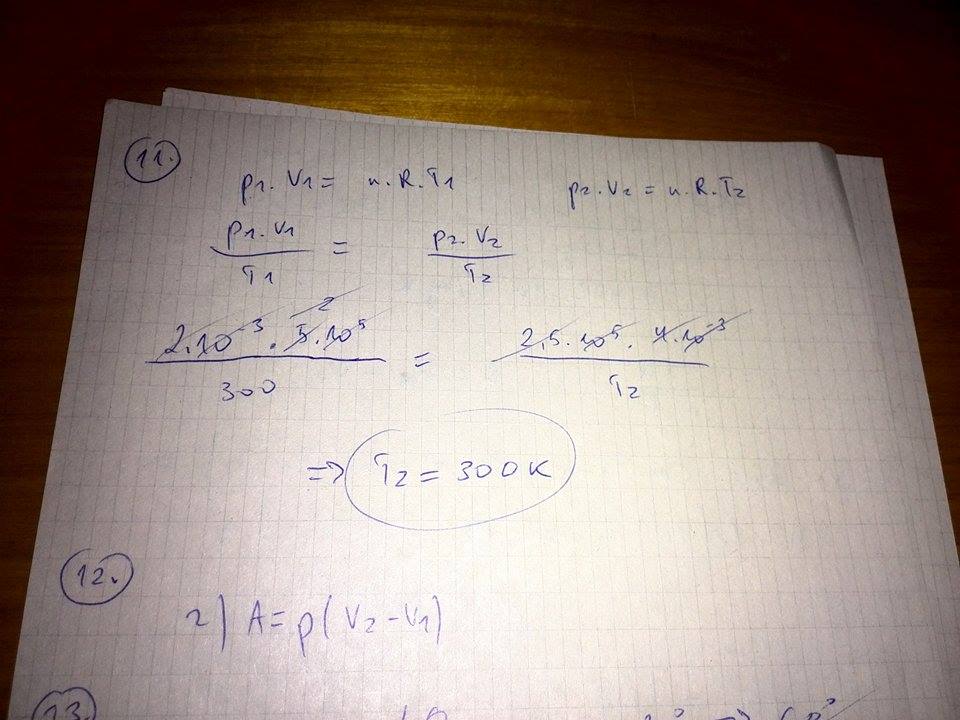 11.
p1.V1 = n.R.T1 p2.V2 = n.R.T2
p1.V1/T1 = p2.V2/T2
2
2.10⁻³.5.10⁵/300 = 2,5.10⁵.4.10⁻³/T2
=> T2 = 300K
12.
2) A=p(V2-V1)
13.